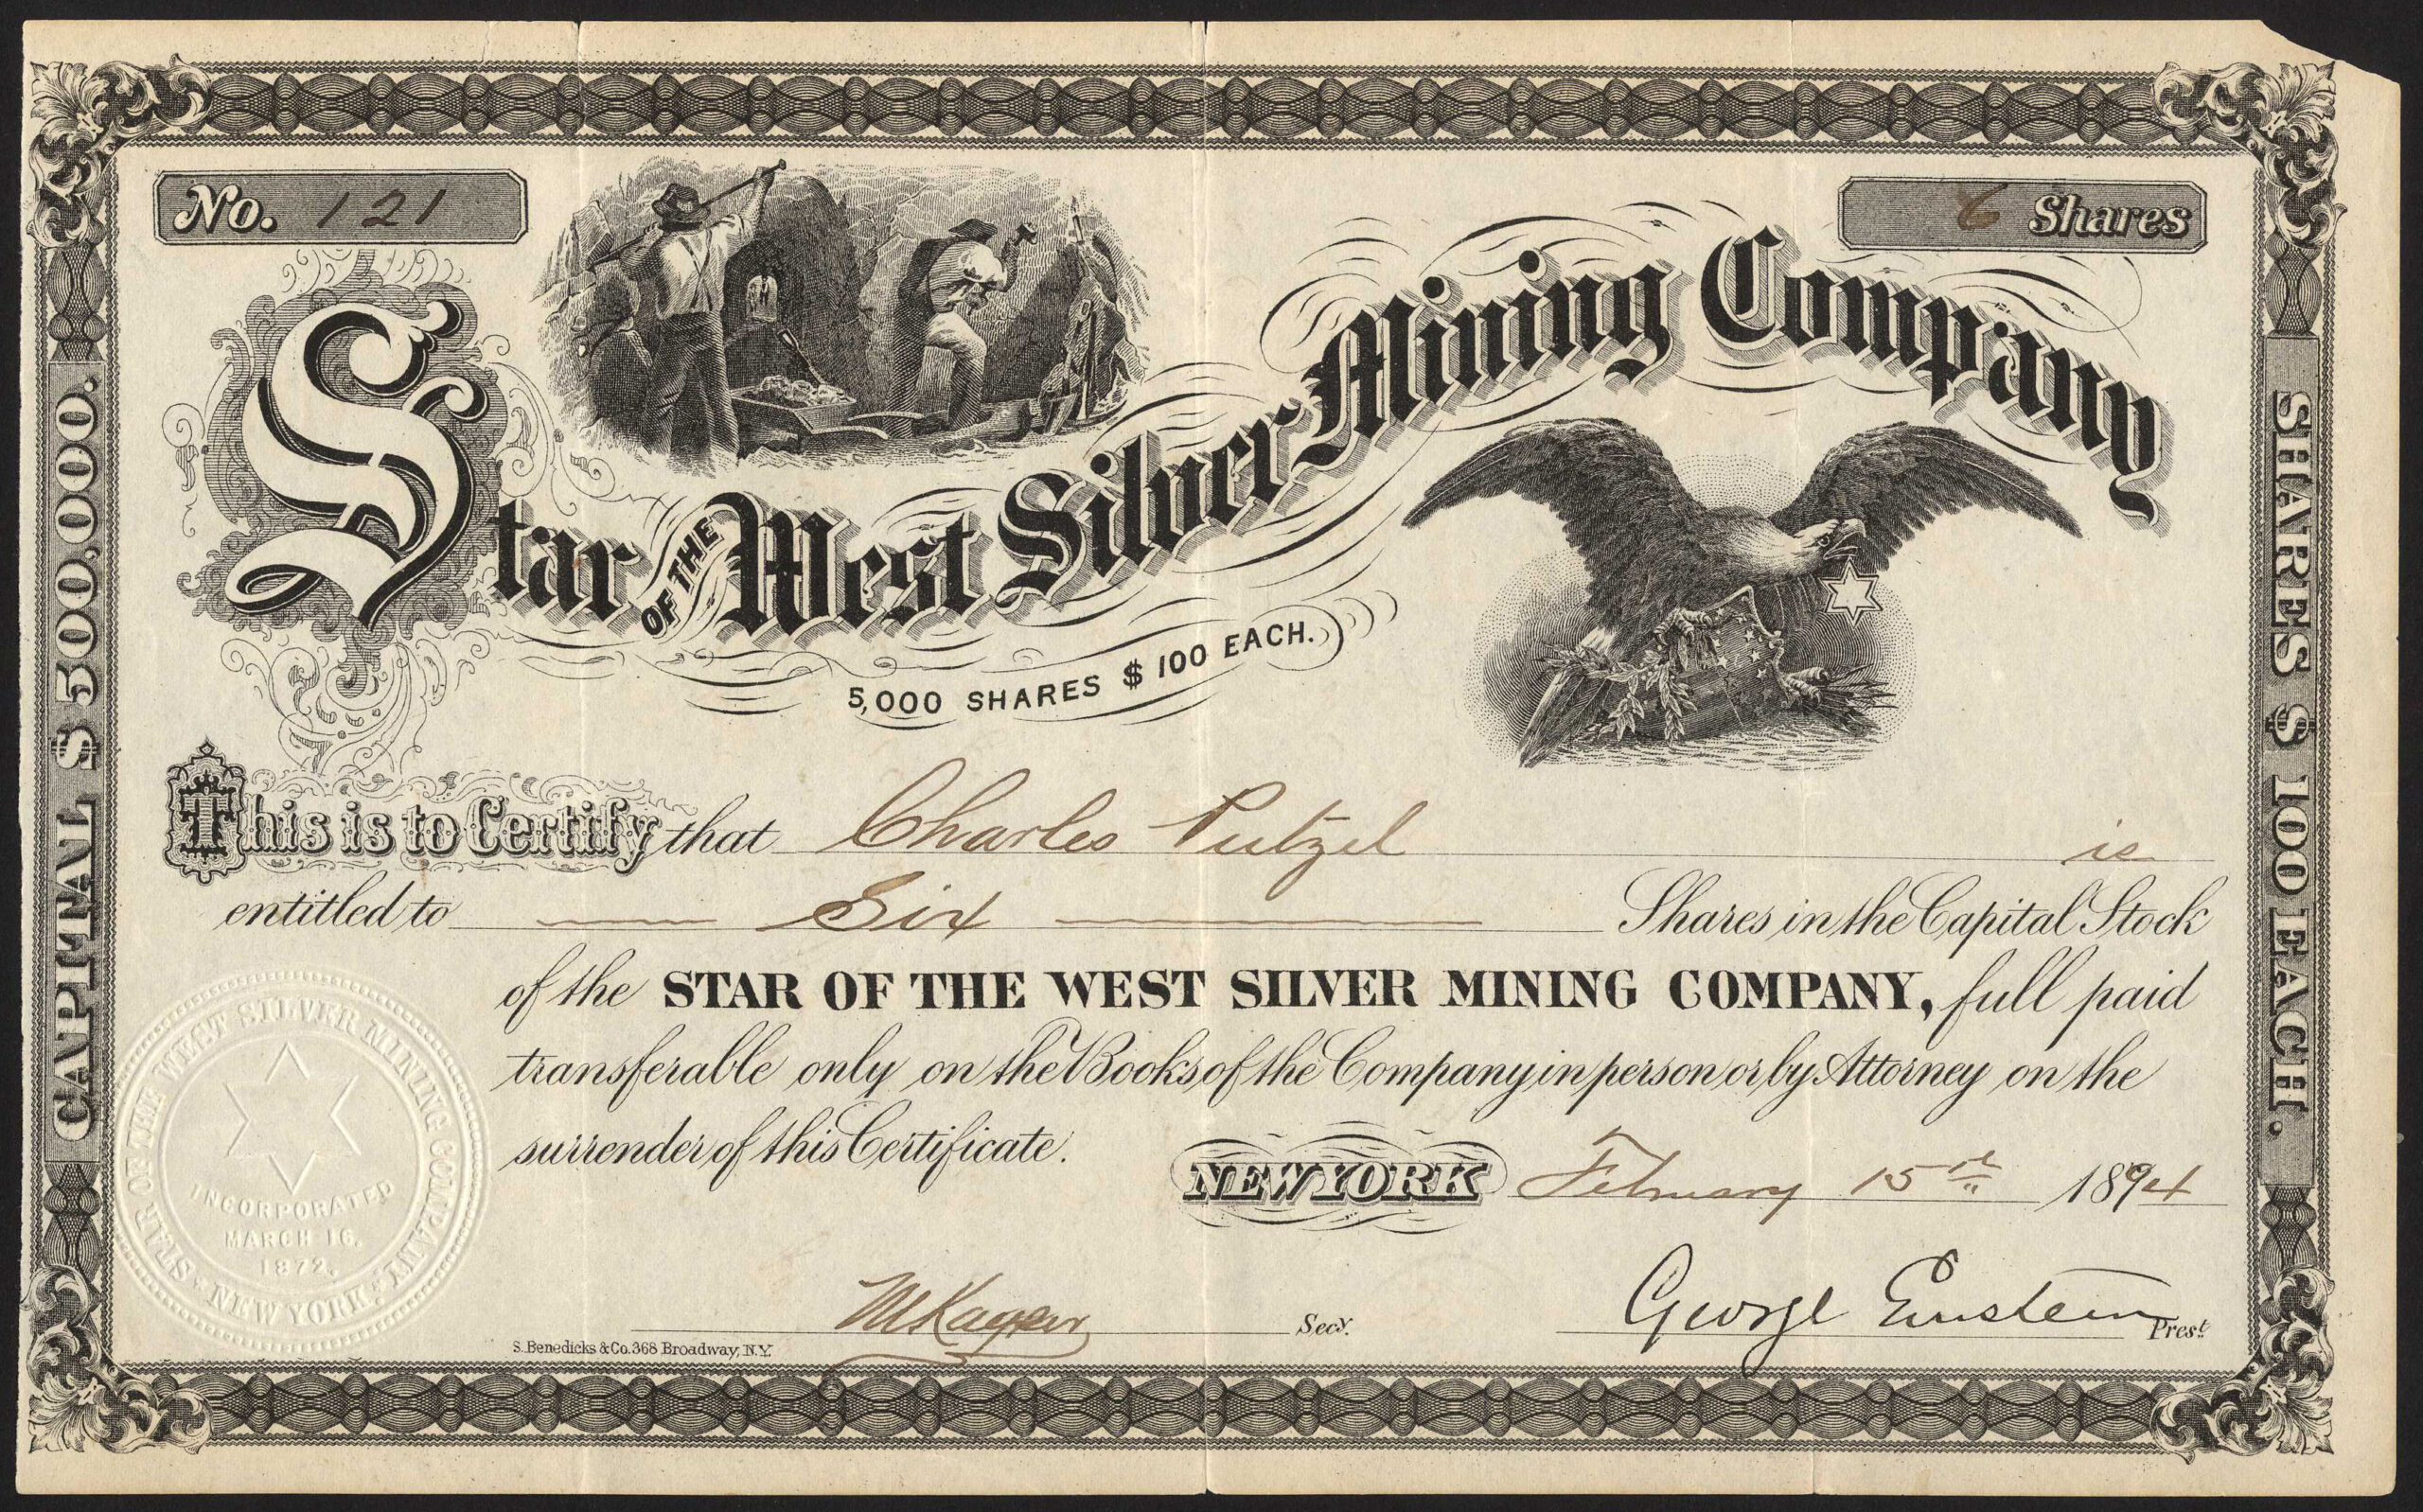 No. 121
6 Shares
Star OF THE West Silver Mining Company
5,000 SHARES $ 100 EACH.
CAPITAL $ 500,000.
SHARES $ 100 EACH.
This is to Certify that Charles Putzel is
entitled to Six Shares in the Capital Stock
of the STAR OF THE WEST SILVER MINING COMPANY, full paid
transferable only on the Books of the Company in person or by Attorney on the
surrender of this Certificate.
NEW YORK February 15th 1894
STAR OF THE WEST SILVER MINING COMPANY. NEW YORK
INCORPORATED
MARCH 16.
1872.
Secy.
George Einstein Prest
S. Benedicks & Co. 368 Broadway, N.Y.